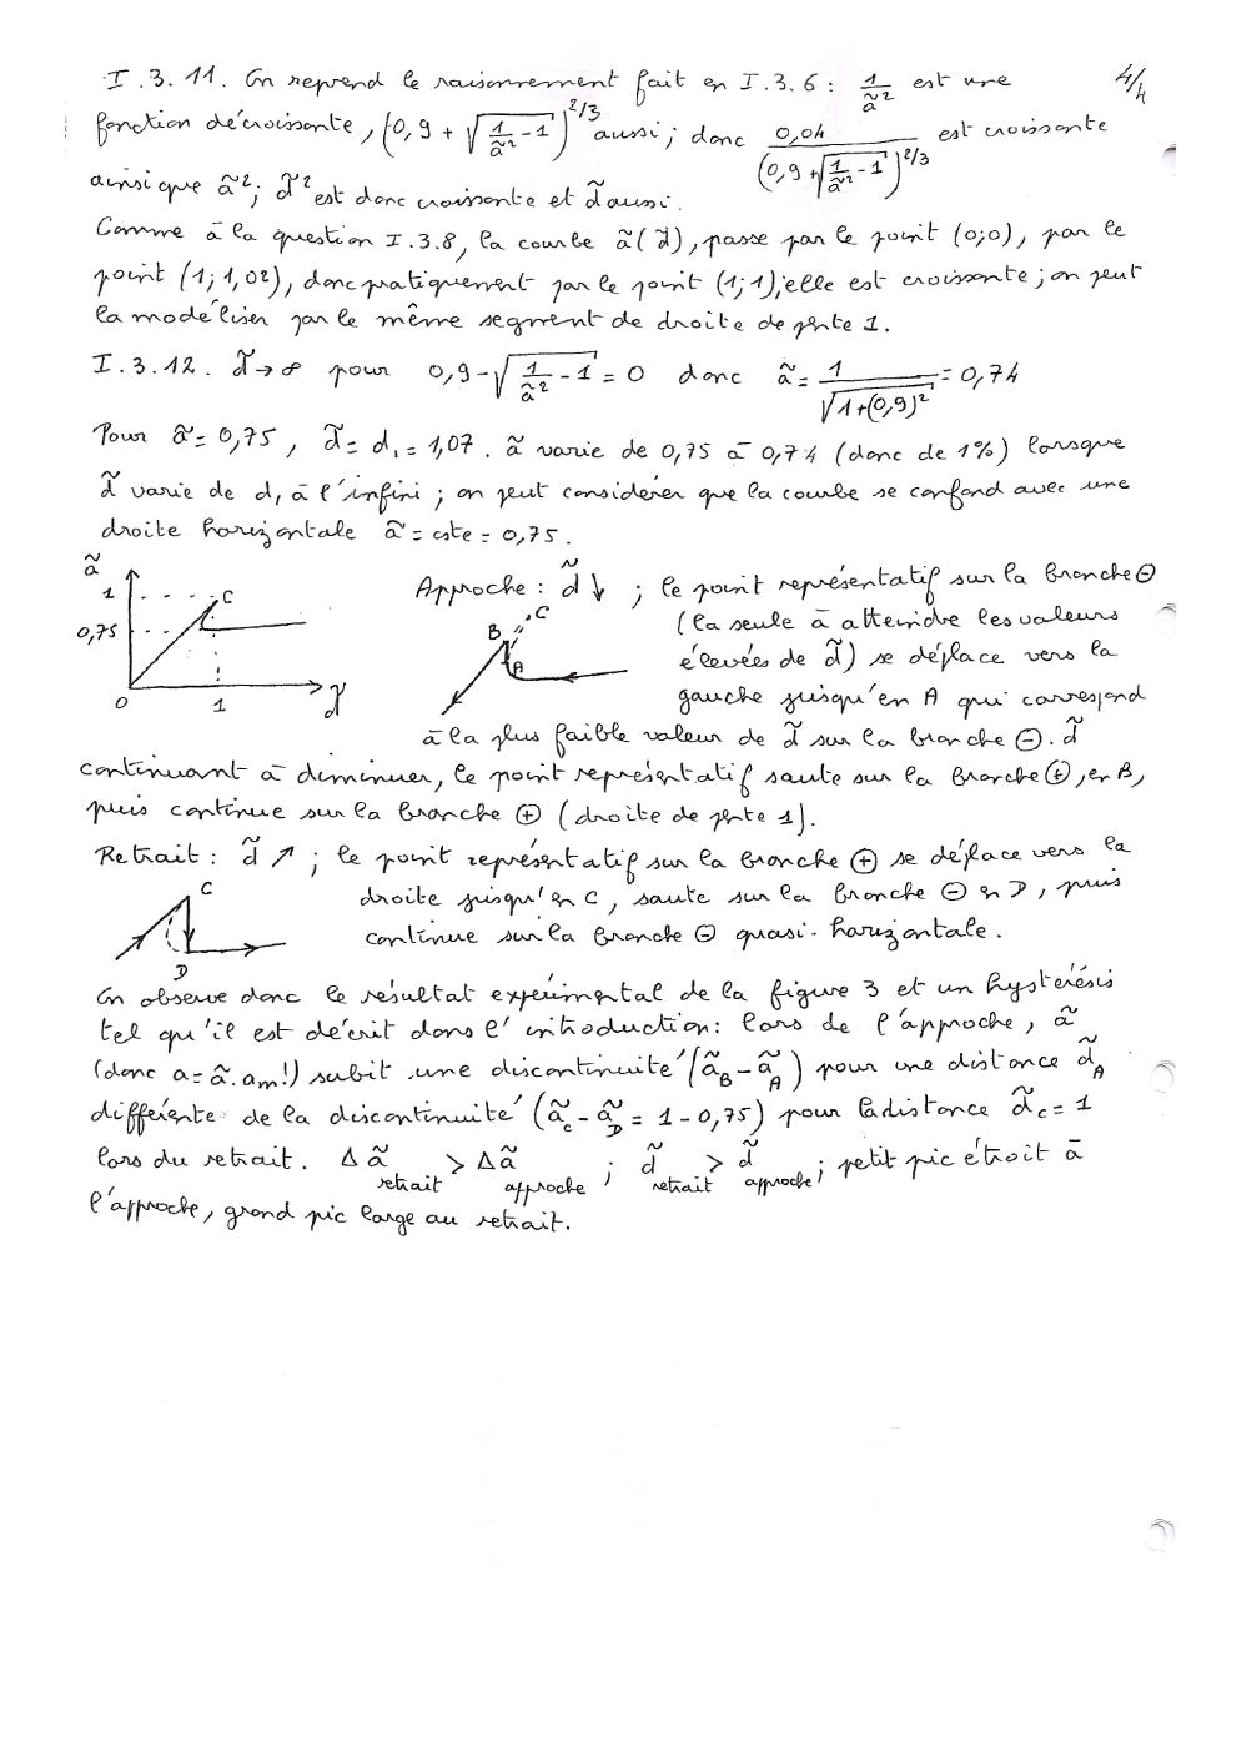 I.3.11. On reprend le raisonnement fait en I.3.6 : 1/ã² est une 4/4
fonction décroissante, (0,9 + √(1/ã² - 1))^2/3 aussi ; donc 0,04/(0,9 + √(1/ã² - 1))^2/3 est croissante
ainsi que ã² ; d̃² est donc croissante et d̃ aussi.
Comme à la question I.3.8, la courbe ã(d̃), passe par le point (0;0), par le
point (1; 1,02), donc pratiquement par le point (1;1) ; elle est croissante ; on peut
la modéliser par le même segment de droite de pente 1.
I.3.12. d̃ → ∞ pour 0,9 - √(1/ã² - 1) = 0 donc ã = 1/√(1+(0,9)²) = 0,74
Pour ã = 0,75, d̃ = d₁ = 1,07. ã varie de 0,75 à 0,74 (donc de 1%) lorsque
d̃ varie de d₁ à l'infini ; on peut considérer que la courbe se confond avec une
droite horizontale ã = cste = 0,75.
ã
1
C
0,75
0
1
d̃
Approche : d̃ ↓ ; le point représentatif sur la branche ⊖
C
B
A
(la seule à atteindre les valeurs
élevées de d̃) se déplace vers la
gauche jusqu'en A qui correspond
à la plus faible valeur de d̃ sur la branche ⊖. d̃
continuant à diminuer, le point représentatif saute sur la branche ⊕, en B,
puis continue sur la branche ⊕ (droite de pente 1).
Retrait : d̃ ↗ ; le point représentatif sur la branche ⊕ se déplace vers la
C
D
droite jusqu'en C, saute sur la branche ⊖ en D, puis
continue sur la branche ⊖ quasi-horizontale.
On observe donc le résultat expérimental de la figure 3 et un hystérésis
tel qu'il est décrit dans l'introduction : lors de l'approche, ã
(donc a = ã.am!) subit une discontinuité (ã_B - ã_A) pour une distance d̃_A
différente de la discontinuité (ã_C - ã_D = 1 - 0,75) pour la distance d̃_C = 1
lors du retrait. Δã_retrait > Δã_approche ; d̃_retrait > d̃_approche ; petit pic étroit à
l'approche, grand pic large au retrait.